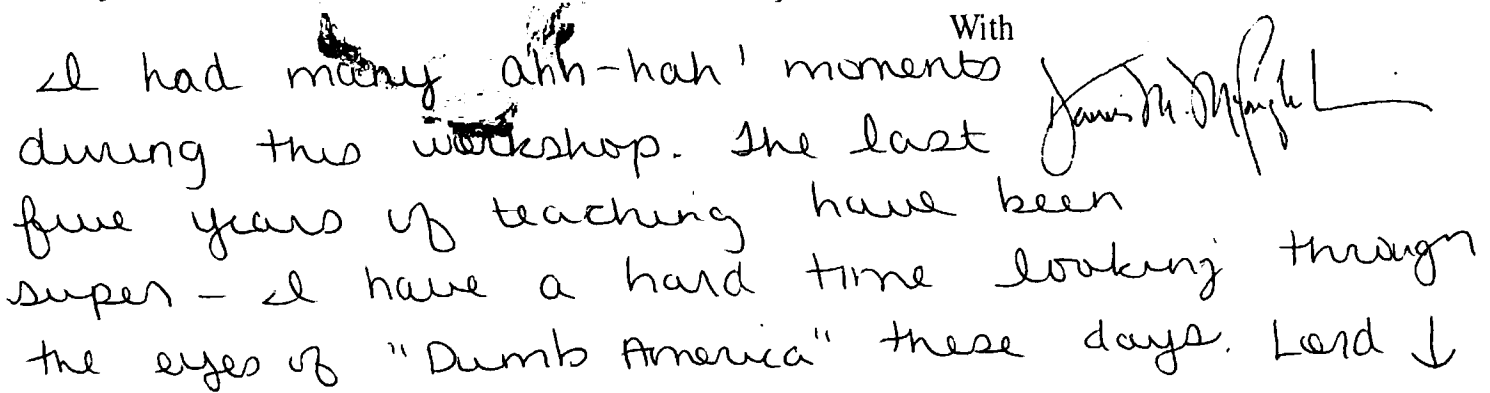 With
I had many ahh-hah' moments
during this workshop. The last
five years of teaching have been
super - I have a hard time looking through
the eyes of "Dumb America" these days. Lord ↓